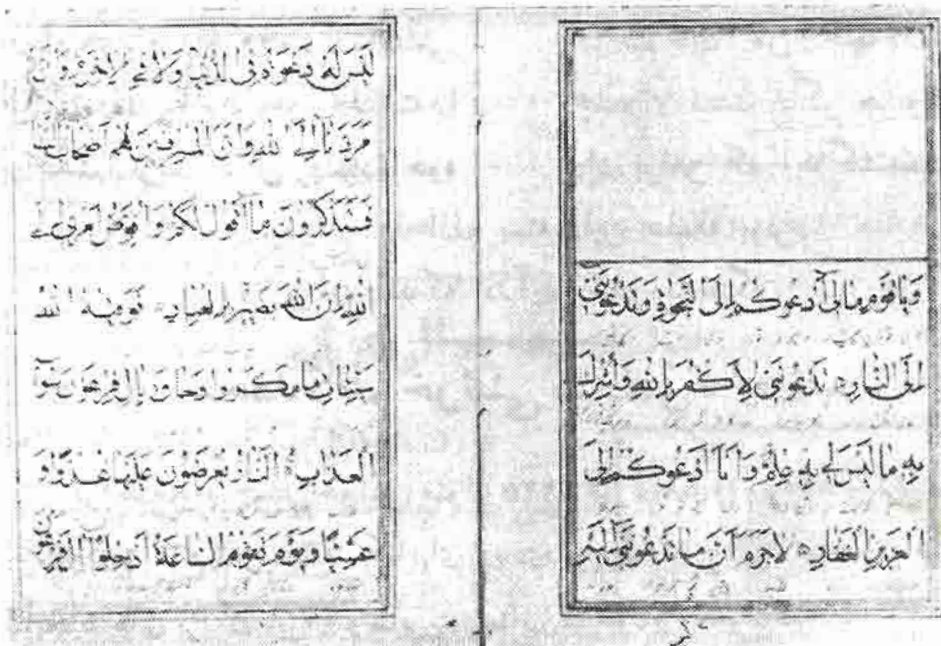 وَيَا قَوْمِ مَا لِي أَدْعُوكُمْ إِلَى النَّجَوةِ وَتَدْعُونَنِي
إِلَى النَّارِ تَدْعُونَنِي لِأَكْفُرَ بِاللهِ وَأُشْرِكَ
بِهِ مَا لَيْسَ لِي بِهِ عِلْمٌ وَأَنَا أَدْعُوكُمْ إِلَى
الْعَزِيزِ الْغَفَّارِ لَا جَرَمَ أَنَّ مَا تَدْعُونَنِي إِلَيْهِ
لَيْسَ لَهُ دَعْوَةٌ فِي الدُّنْيَا وَلَا فِي الْآخِرَةِ وَأَنَّ
مَرَدَّنَا إِلَى اللهِ وَأَنَّ الْمُسْرِفِينَ هُمْ أَصْحَابُ النَّارِ
فَسَتَذْكُرُونَ مَا أَقُولُ لَكُمْ وَأُفَوِّضُ أَمْرِي إِلَى
اللهِ إِنَّ اللهَ بَصِيرٌ بِالْعِبَادِ فَوَقَيهُ اللهُ
سَيِّئَاتِ مَا مَكَرُوا وَحَاقَ بِآلِ فِرْعَوْنَ سُوءُ
الْعَذَابِ النَّارُ يُعْرَضُونَ عَلَيْهَا غُدُوًّا وَ
عَشِيًّا وَيَوْمَ تَقُومُ السَّاعَةُ أَدْخِلُوا آلَ فِرْعَوْنَ